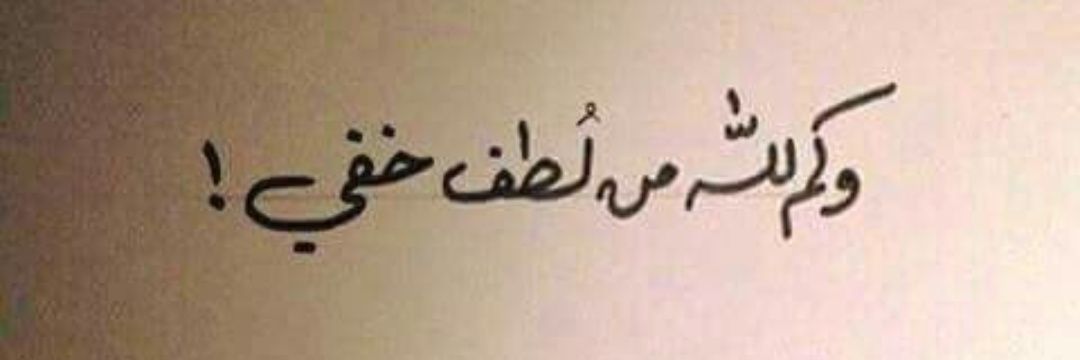 وكم للّه من لُطف خفي !